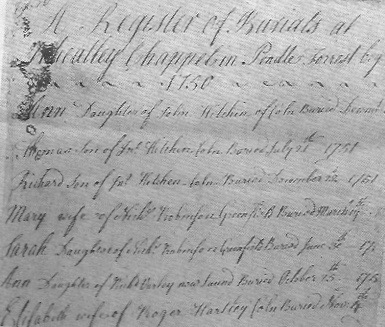 A Register of Burials at
Wheatley Chappel in Pendle Forrest beg
1750
Ann Daughter of John Hitchin of Coln Buried
Thomas Son of Jno. Hitchin Coln Buried July 21th 1751
Richard Son of Jno. Hitchen Coln Buried November 22 1751
Mary wife of Nichs. Robinson Greenfd. B Buried March
Sarah Daughter of Nichs. Robinson Greenfield Buried June
Ann Daughter of Richd. Varley Buried October 15th 175
Elisabeth wife of Roger Hartley Coln Buried Nov. 4th